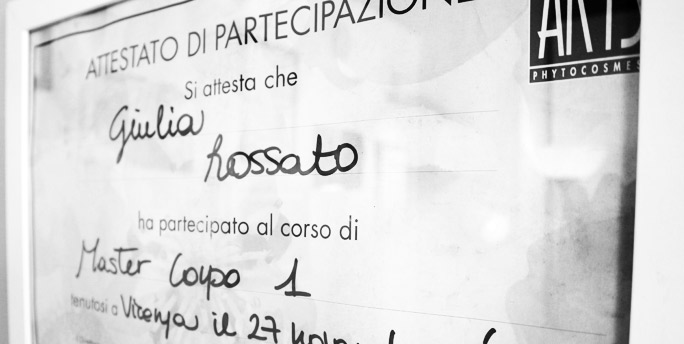 ATTESTATO DI PARTECIPAZIONE
PHYTOCOSMES
Si attesta che
Giulia
Rossato
ha partecipato al corso di
Master Corpo 1
tenutosi a Vicenza il 27